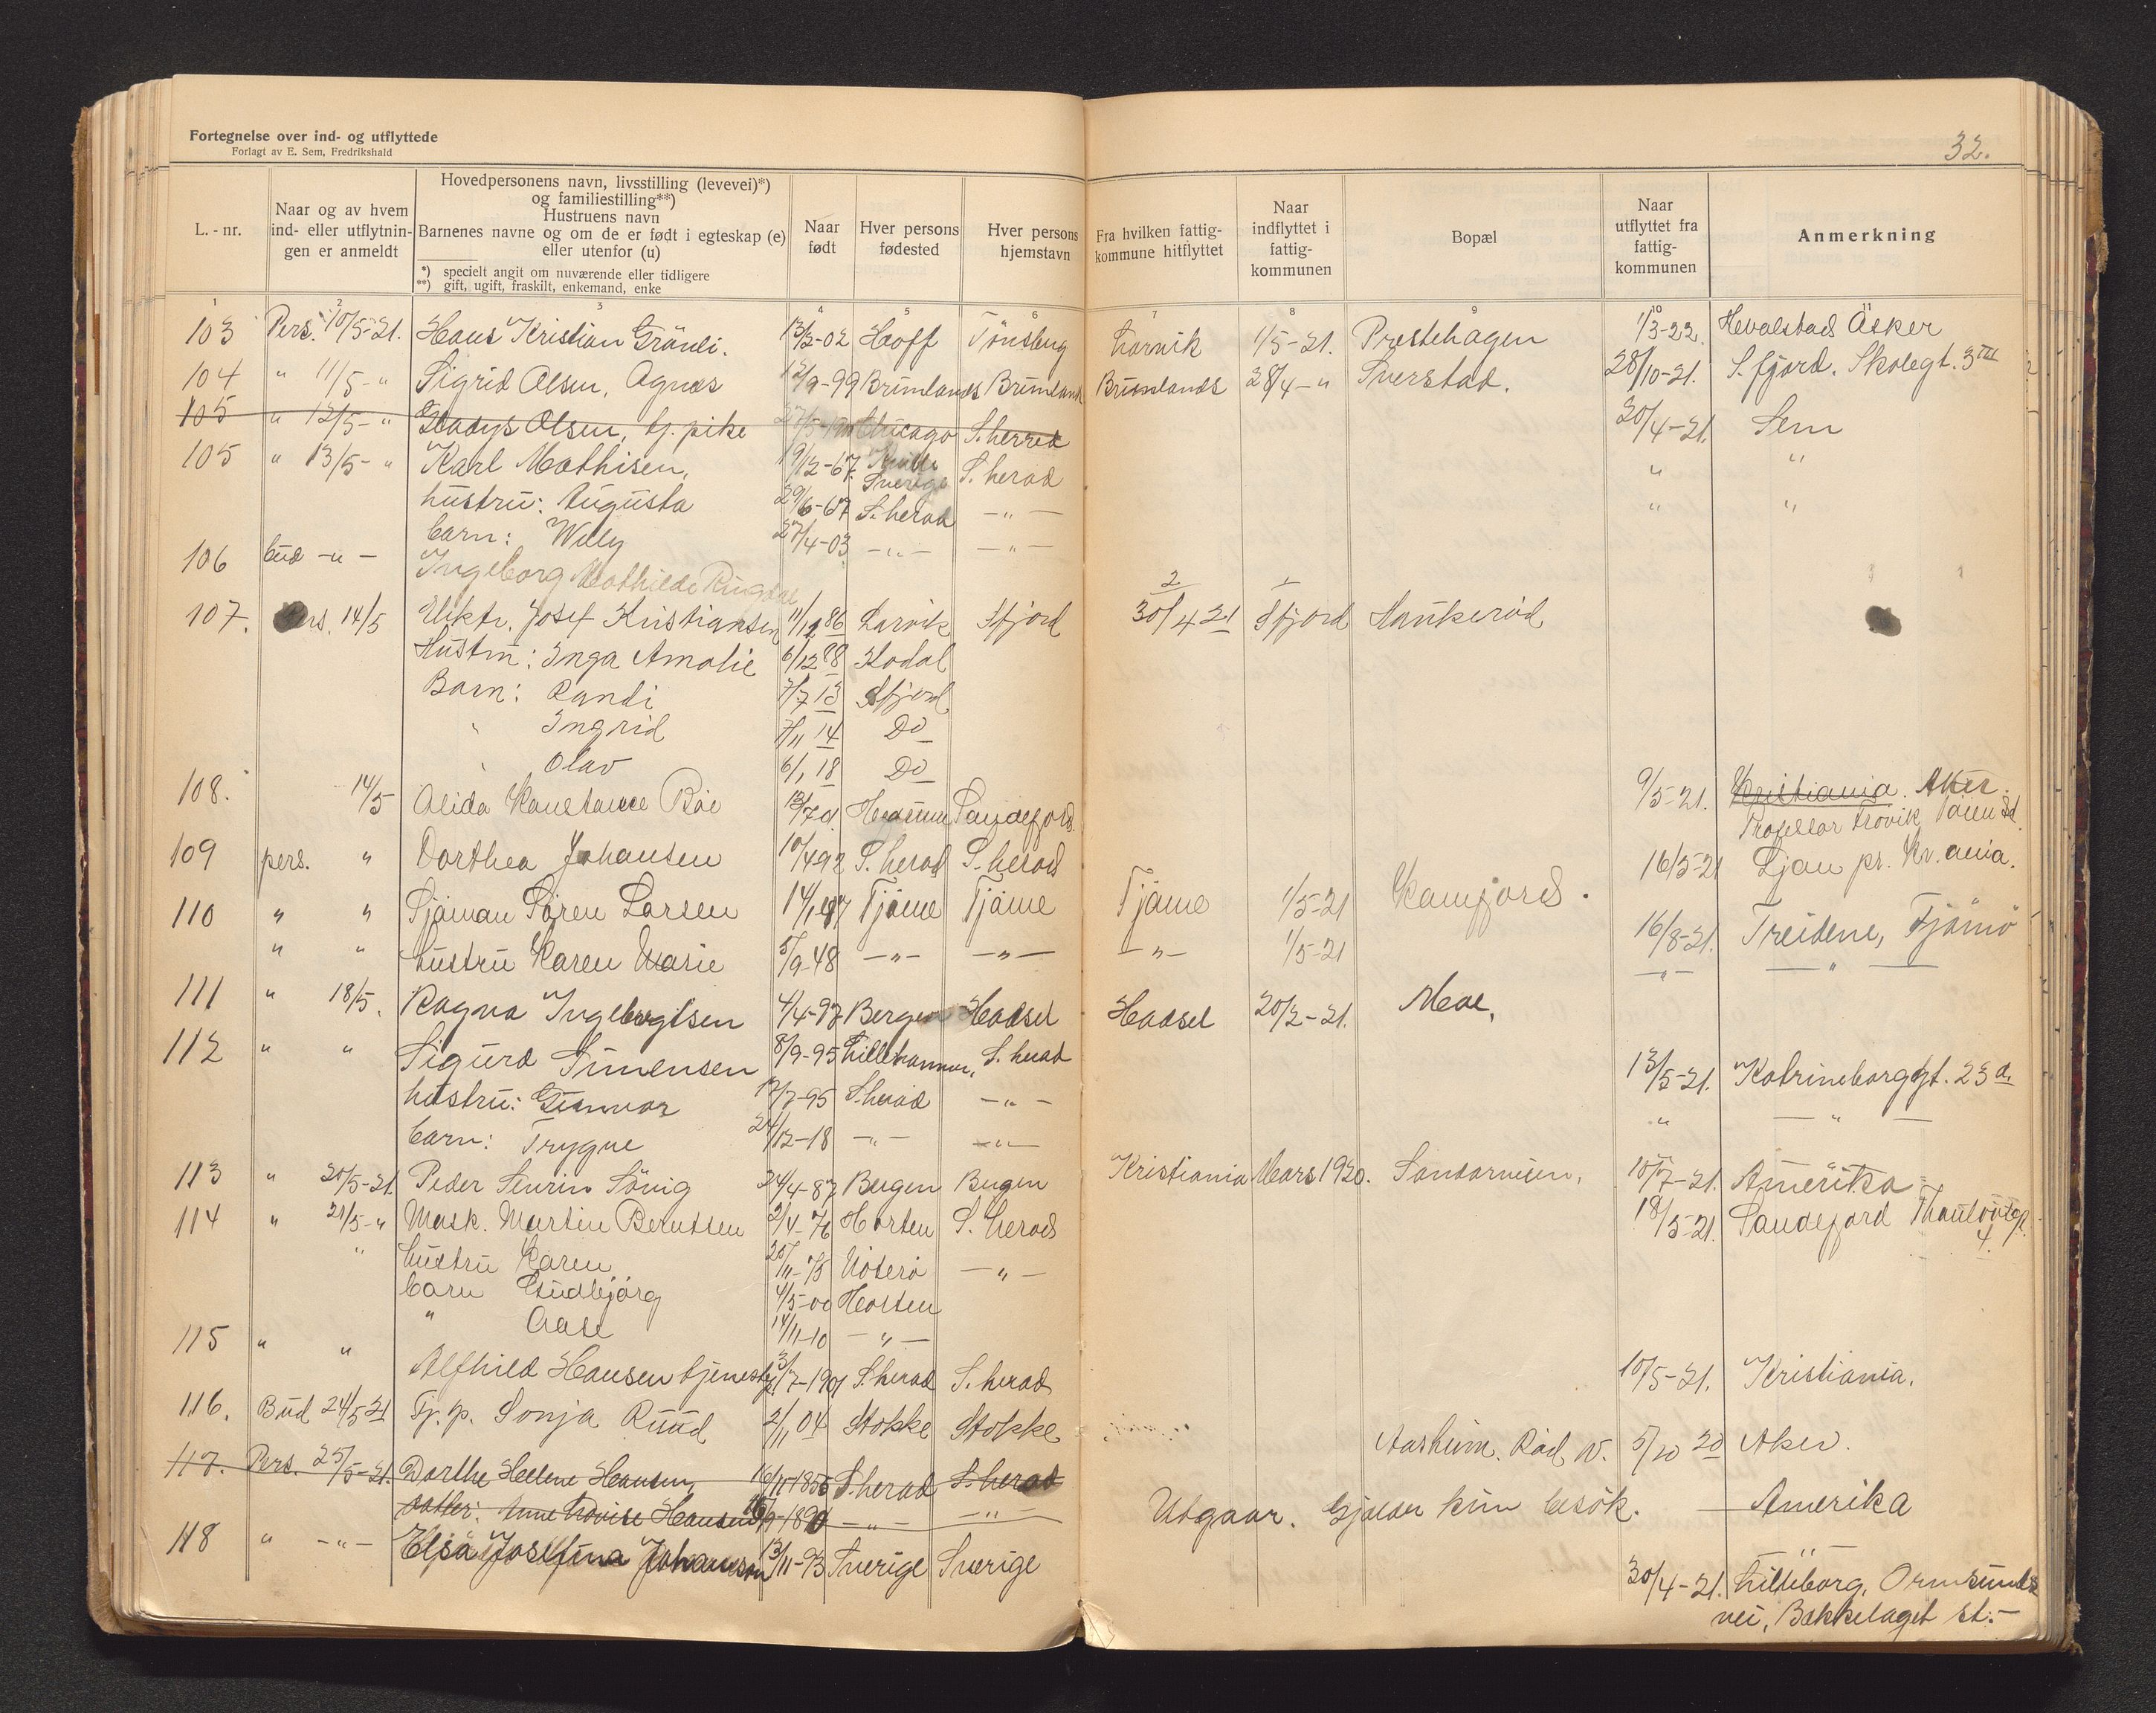 Fortegnelse over ind- og utflyttede
Forlagt av E. Sem, Fredrikshald
32.
L. - nr.
Naar og av hvem ind- eller utflytnin- gen er anmeldt
Hovedpersonens navn, livsstilling (levevei)*)
og familiestilling**)
Hustruens navn
Barnenes navne og om de er født i egteskap (e)
eller utenfor (u)
*) specielt angit om nuværende eller tidligere
**) gift, ugift, fraskilt, enkemand, enke
Naar født
Hver persons fødested
Hver persons hjemstavn
Fra hvilken fattig- kommune hitflyttet
Naar indflyttet i fattig- kommunen
Bopæl
Naar utflyttet fra fattig- kommunen
Anmerkning
1 2 3 4 5 6 7 8 9 10 11
103 Pers. 10/5-21. Hans Kristian Gränli. 13/2-02 Hoff Tönsberg Larvik 1/5-21. Prestehagen 1/3-22. Hvalstad Asker
104 " 11/5-" Sigrid Olsen, Agnes 12/9-99 Brunlands Brunland Brunlands 28/4-" Sverstad. 28/10-21. S.fjord. Skolegt. 3 III
105 " 12/5-" Gladys Olsen, tj. pike Chicago S. herred 30/4-21. Sem
105 " 13/5-" Karl Mathisen, 19/12-67 Sverige S. herad " "
hustru: Augusta 29/6-67 S. herad -"- " "
barn: Willy 27/4-03 -"- -"-
106 bud -"- Ingeborg Mathilde Ringdal
107. Pers. 14/5 Elektr. Josef Kristiansen 11/12 86 Larvik Sfjord 30/4 21 Sfjord Haukeröd
Hustru: Inga Amalie 6/12 88 Kodal
Barn: Randi 7/7 13 Sfjord
" Ingrid 7/11 14 Do
" Olav 6/1 18 Do
108. 14/5 Alida Konstance Böe Hedrum Sandefjord 9/5-21. Kristiania. Aker.
Professor
109 pers. " Dorthea Johansen 10/4-92 S. herad S. herad 16/5-21 Ljan pr. Kr.ania.
110 " " Sjöman Sören Larsen 14/1-47 Tjöme Tjöme Tjöme 1/5-21 Kamfjord. 16/8-21. Treidene, Tjömö
" " hustru Karen Marie 5/9-48 -"- -"- -"- 1/5-21 -"- -"-
111 " 18/5. Ragna Ingebrigtsen 4/4-97 Bergen Hadsel Hadsel 20/2-21. Moe,
112 " " Sigurd Simensen 8/9-95 Lillehammer, S. herad 13/5-21. Katrineborggt. 23 a.
hustru: Gunvor 17/7-95 S. herad -"- " -"-
barn: Trygve 24/12-18 -"- -"-
113 " 20/5-21. Peder Severin Sövig 24/4-87 Bergen Bergen Kristiania Mars 1920. Sandarveien, 10/7-21. Amerika
114 " 21/5-" Mask. Martin Berntsen 2/4-76 Horten S. herad 18/5-21. Sandefjord Thaulowsgt. 4.
" hustru Karen 20/11-75 Nöterö -"-
barn Gudbjörg 4/5-00 Horten
" Aase 14/11-10 -"-
115 " " Alfhild Hansen tjenestp. 3/7-1901 S. herad S. herad 10/5-21. Kristiania.
116. Bud 24/5 21 Tj. p. Sonja Ruud 2/11 04 Stokke Stokke Aasheim. Röd, N. 5/10 20 Aker.
117. Pers. 25/5-21. Dorthe Hellene Hansen, 16/11-1855 S. herad S. herad
datter: Anne Lovise Hansen -"- -"- Utgaar. Gjælder kun besök. — Amerika
118 " -"- Elsa Josefina Johansson 13/11-93 Sverige Sverige 30/4-21. Lilleborg, Ormsunds
vei, Bækkelaget st.-